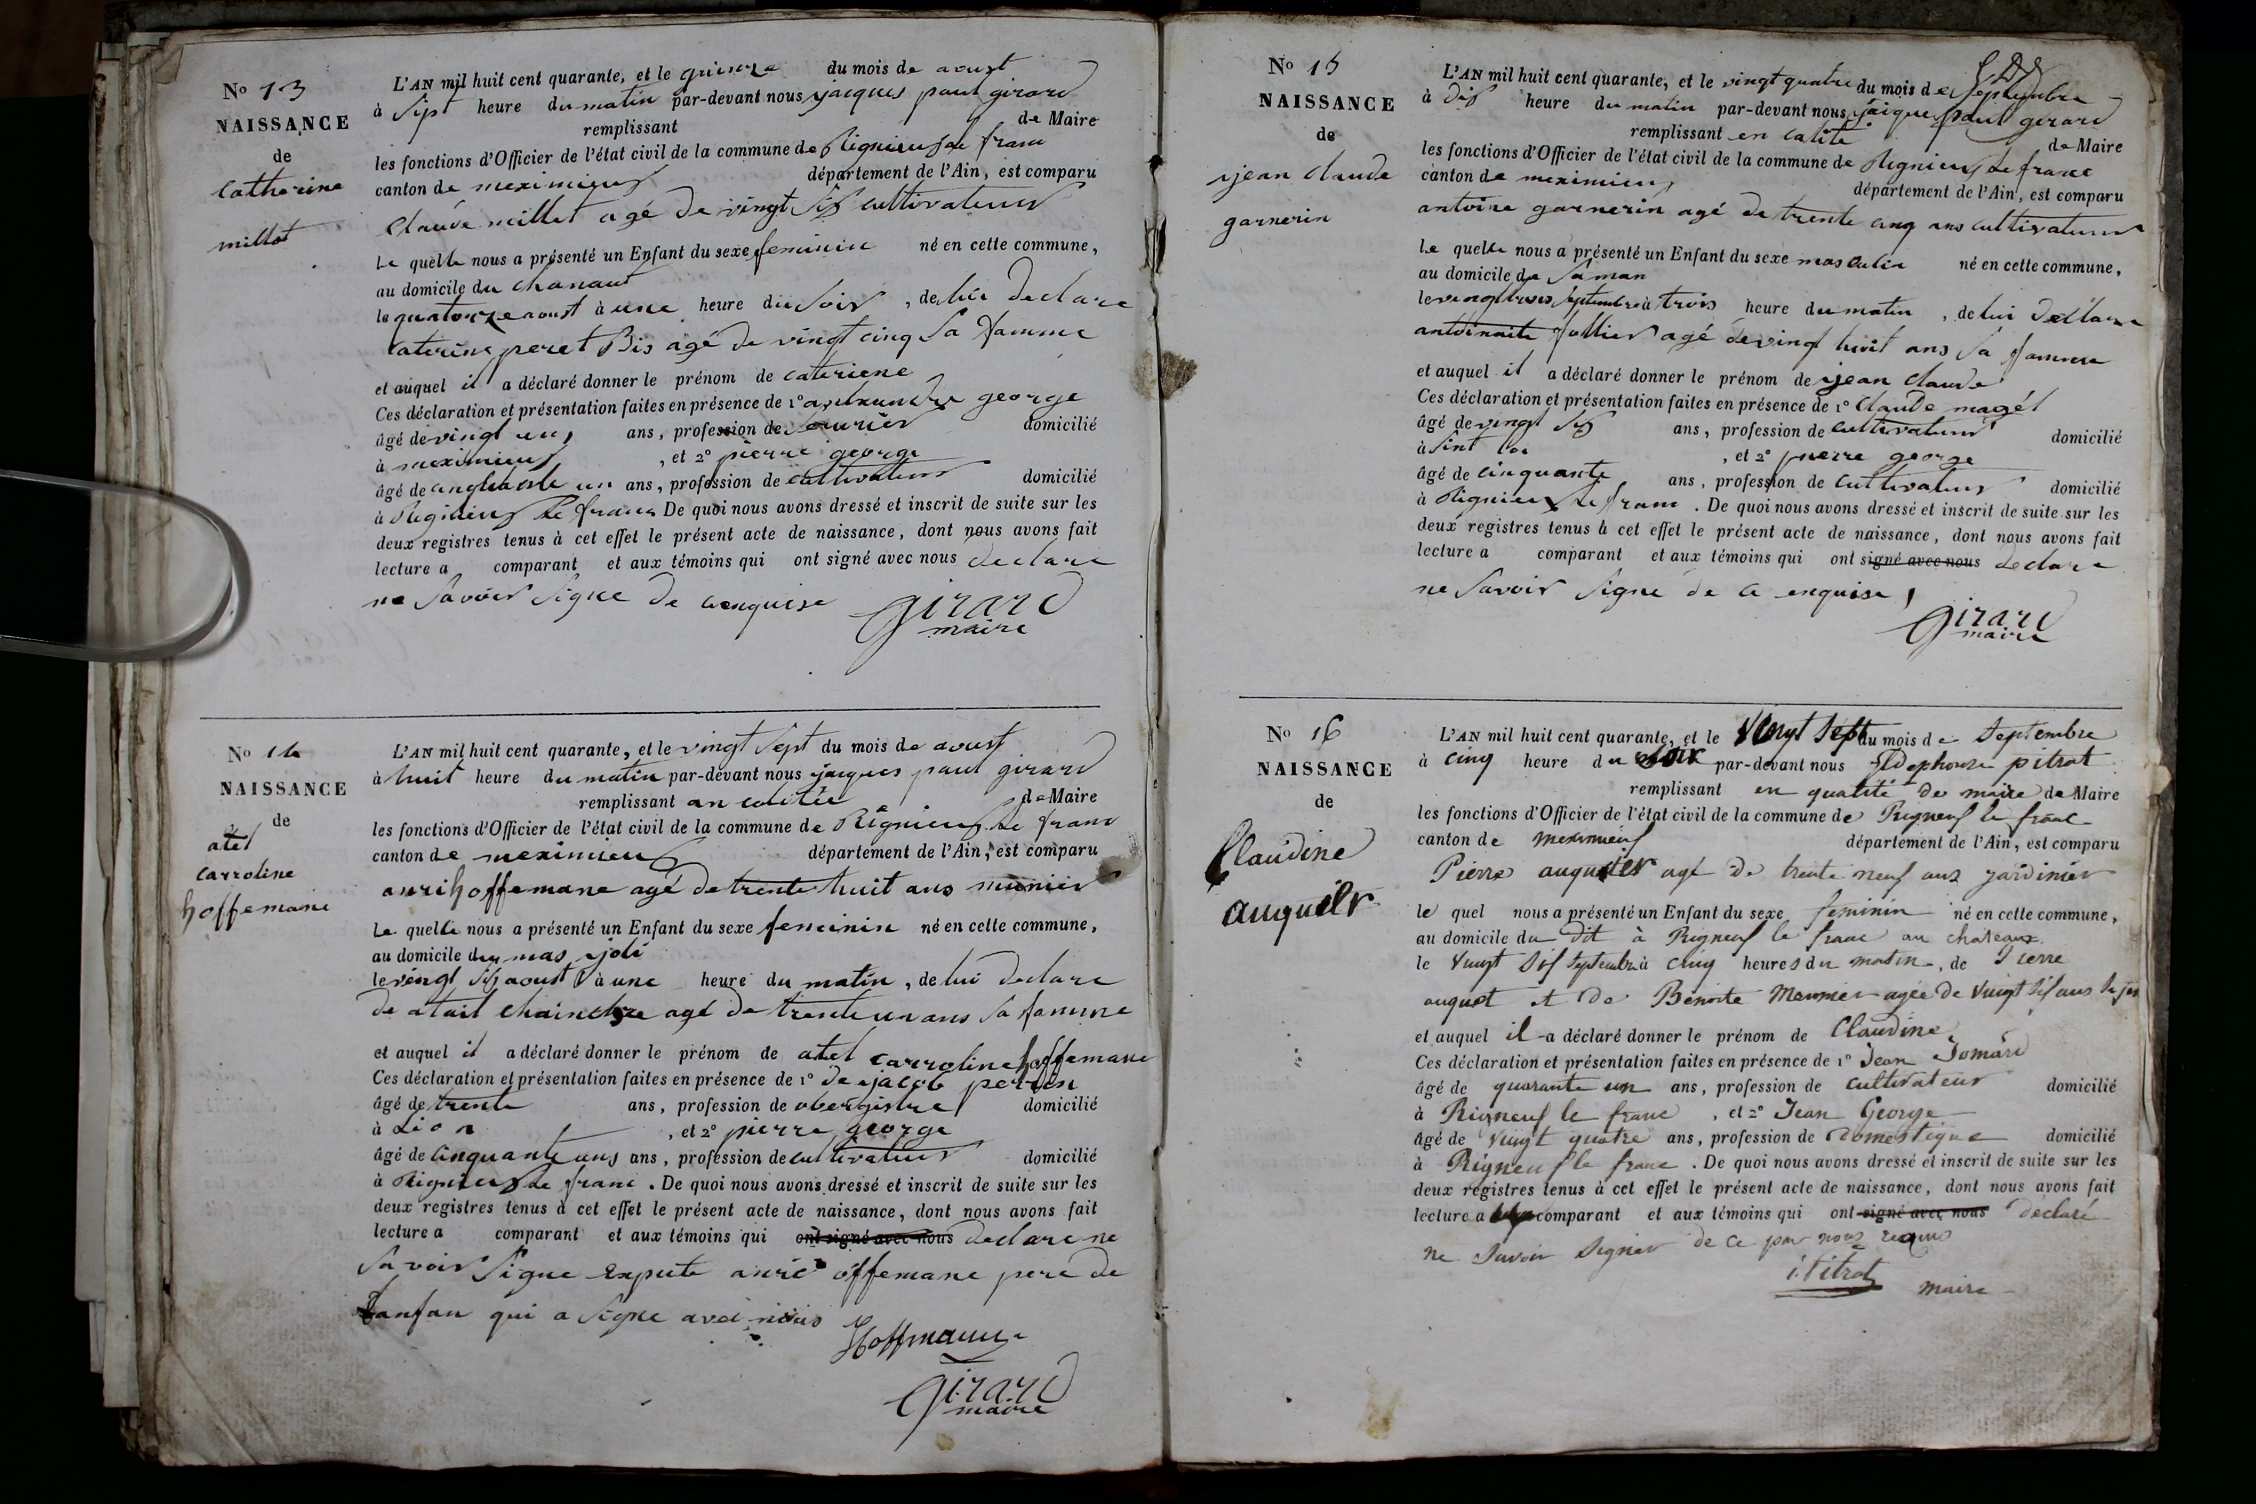 No 13
NAISSANCE
de
Catherine
millet
L'AN mil huit cent quarante, et le quinze du mois de aoust
à Sept heure du matin par-devant nous jacques paul girard
remplissant de Maire
les fonctions d'Officier de l'état civil de la commune de Rignieux le franc
canton de meximieux département de l'Ain, est comparu
Claude millet agé de vingt Six cultivateur
Le quelle nous a présenté un Enfant du sexe feminin né en cette commune,
au domicile du chanaut
le quatorze aoust à une heure du Soir, de lui declare
caterine peret Bis agé de vingt cinq Sa famme
et auquel il a déclaré donner le prénom de cateriene
Ces déclaration et présentation faites en présence de 1° george
âgé de vingt un ans, profession de domicilié
à meximieux, et 2° pierre george
âgé de cinquante un ans, profession de cultivateur domicilié
à Rignieux le franc De quoi nous avons dressé et inscrit de suite sur les
deux registres tenus à cet effet le présent acte de naissance, dont nous avons fait
lecture a comparant et aux témoins qui ont signé avec nous declare
ne Savoir Signe de ce enquise
girard
maire
No 14
NAISSANCE
de
atel
carroline
hoffemane
L'AN mil huit cent quarante, et le vingt Sept du mois de aoust
à huit heure du matin par-devant nous jacques paul girard
remplissant an calitée de Maire
les fonctions d'Officier de l'état civil de la commune de Rignieux Le franc
canton de meximieux département de l'Ain, est comparu
anri hoffemane agé de trente huit ans munier
Le quelle nous a présenté un Enfant du sexe feminin né en cette commune,
au domicile du mas joli
le vingt Six aoust à une heure du matin, de lui declare
de atail chainchre agé de trente un ans Sa famme
et auquel il a déclaré donner le prénom de atel carroline hoffemane
Ces déclaration et présentation faites en présence de 1° de jacob perrin
âgé de trente ans, profession de obergistre domicilié
à Lion, et 2° pierre george
âgé de cinquante uns ans, profession de cultivateur domicilié
à Rignieux Le franc. De quoi nous avons dressé et inscrit de suite sur les
deux registres tenus à cet effet le présent acte de naissance, dont nous avons fait
lecture a comparant et aux témoins qui ont signé avec nous declare ne
Savoir Signe Expete anric offemane pere de
Lanfan qui a Signe avec nous
Hoffmann
girard
maire
No 15
NAISSANCE
de
jean claude
garnerin
L'AN mil huit cent quarante, et le vingt quatre du mois de Septembre
à dix heure du matin par-devant nous jaiques paul girard
remplissant en calité de Maire
les fonctions d'Officier de l'état civil de la commune de Rignieux Le franc
canton de meximieux département de l'Ain, est comparu
antoine garnerin agé de trente cinq ans cultivateur
Le quelle nous a présenté un Enfant du sexe masculin né en cette commune,
au domicile de Saman
le vingt trois Septembre à trois heure du matin, de lui déclare
antoinaite follier agé de vingt huit ans Sa famme
et auquel il a déclaré donner le prénom de jean claude
Ces déclaration et présentation faites en présence de 1° claude magél
âgé de vingt Six ans, profession de cultivateur domicilié
à Sint, et 2° pierre george
âgé de cinquante ans, profession de cultivateur domicilié
à Rignieux Le franc. De quoi nous avons dressé et inscrit de suite sur les
deux registres tenus à cet effet le présent acte de naissance, dont nous avons fait
lecture a comparant et aux témoins qui ont signé avec nous declare
ne Savoir Signé de ce enquise,
girard
maire
No 16
NAISSANCE
de
Claudine
auquier
L'AN mil huit cent quarante, et le Vingt Sept du mois de Septembre
à cinq heure du soir par-devant nous Ildephonse pitrat
remplissant en qualité de maire de Maire
les fonctions d'Officier de l'état civil de la commune de Rigneux le franc
canton de meximieux département de l'Ain, est comparu
Pierre auquier agé de trente neuf ans jardinier
le quel nous a présenté un Enfant du sexe feminin né en cette commune,
au domicile du dit à Rigneux le franc au chateaux
le Vingt Six Septembre à cinq heures du matin, de Pierre
auquet et de Benoite Meunier agée de Vingt Six ans
et auquel il a déclaré donner le prénom de Claudine
Ces déclaration et présentation faites en présence de 1° Jean Jomard
âgé de quarante un ans, profession de cultivateur domicilié
à Rigneux le franc, et 2° Jean George
âgé de vingt quatre ans, profession de domestique domicilié
à Rigneux le franc. De quoi nous avons dressé et inscrit de suite sur les
deux registres tenus à cet effet le présent acte de naissance, dont nous avons fait
lecture a comparant et aux témoins qui ont signé avec nous declaré
ne Savoir Signer de ce par nous requis
i. Pitrat
maire